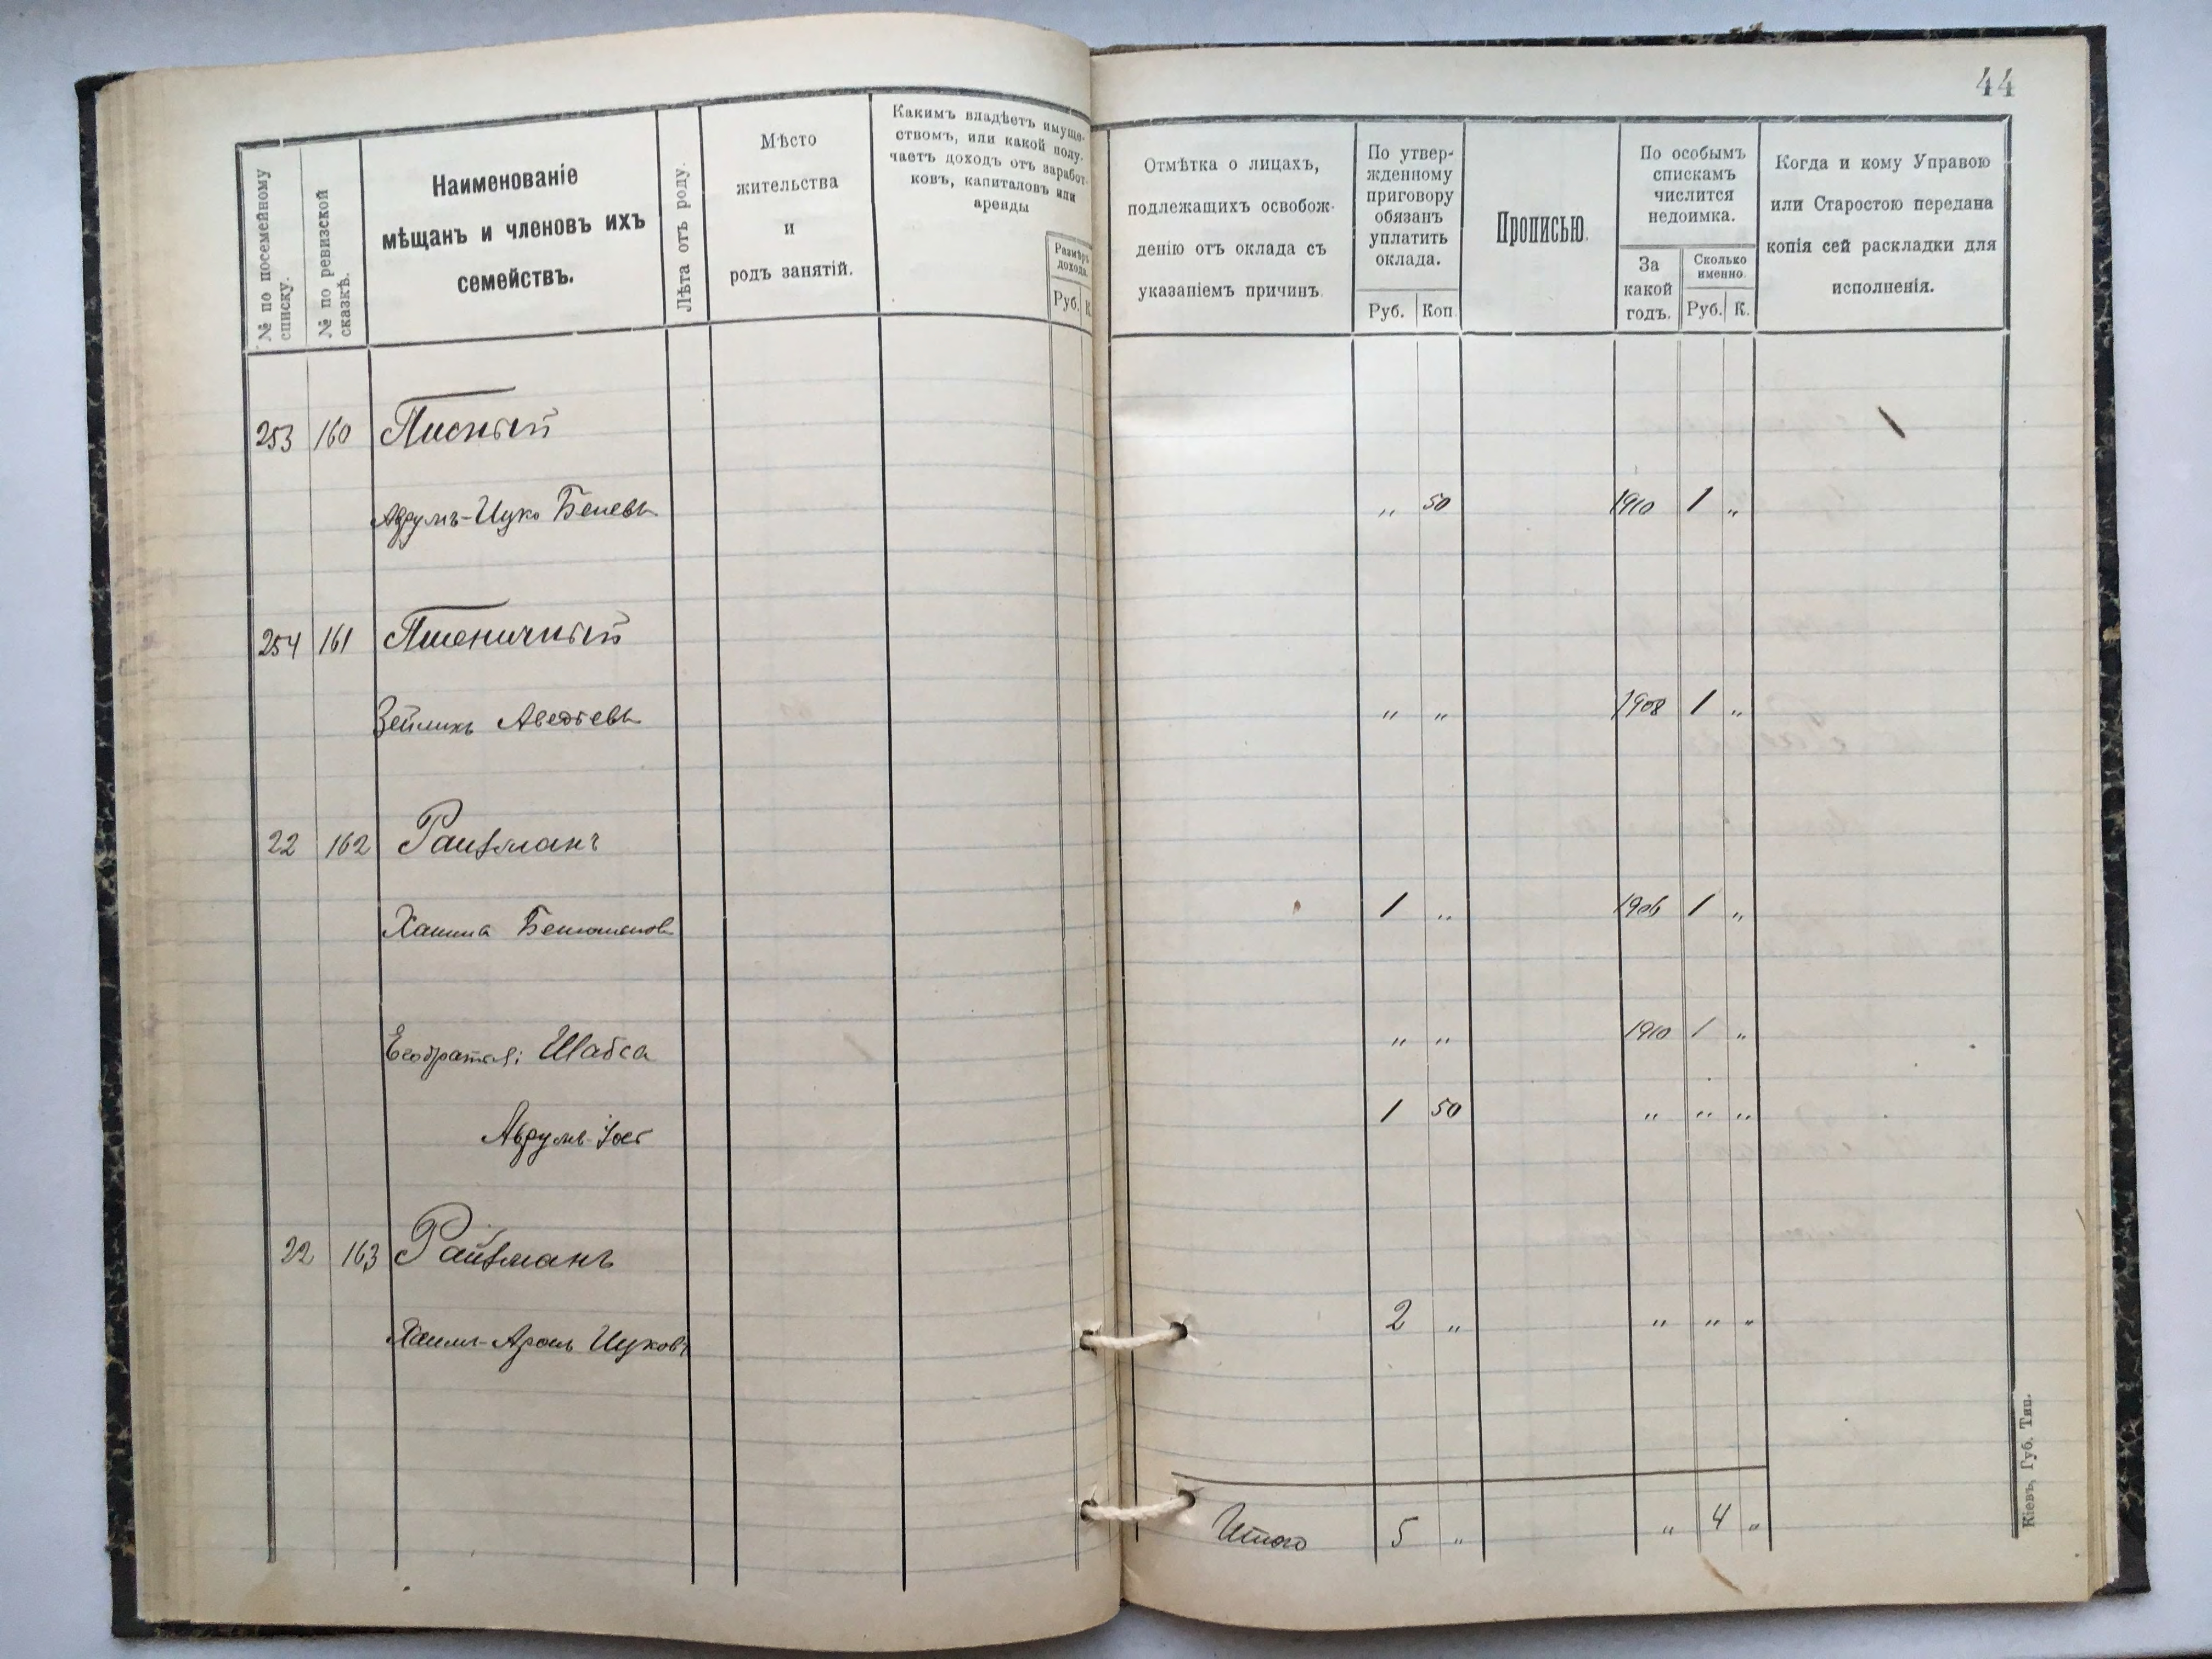 44
№ по посемейному
списку.
№ по ревизской
сказкѣ.
Наименованіе
мѣщанъ и членовъ ихъ
семействъ.
Лѣта отъ роду.
Мѣсто
жительства
и
родъ занятій.
Какимъ владѣетъ имуще-
ствомъ, или какой полу-
чаетъ доходъ отъ заработ-
ковъ, капиталовъ или
аренды
Размѣръ
дохода.
Руб. К.
Отмѣтка о лицахъ,
подлежащихъ освобож-
денію отъ оклада съ
указаніемъ причинъ
По утвер-
жденному
приговору
обязанъ
уплатить
оклада.
Руб. Коп.
Прописью.
По особымъ
спискамъ
числится
недоимка.
За
какой
годъ.
Сколько
именно.
Руб. К.
Когда и кому Управою
или Старостою передана
копія сей раскладки для
исполненія.
253 160 Писный
Аврумъ-Ицко Беневъ „ 50 1910 1 „
254 161 Пшеничный
Зейликъ „ „ 1908 1 „
22 162 Райзманъ
Хаима 1 „ 1906 1 „
Его братья: Шабса „ „ 1910 1 „
Аврумъ 1 50 „ „ „
22 163 Райзманъ
Хаимъ-Аронъ Ицковъ 2 „ „ „ „
Итого 5 „ „ 4 „
Кіевъ, Губ. Тип.